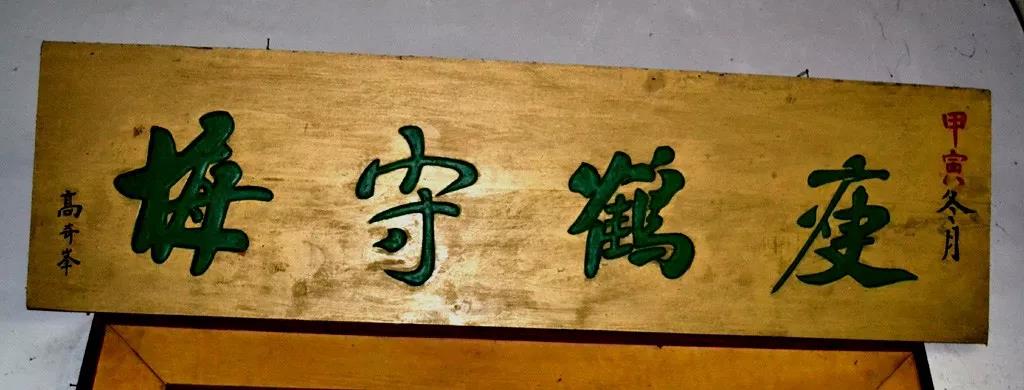 甲寅冬月
瘦鶴守梅
高奇峯